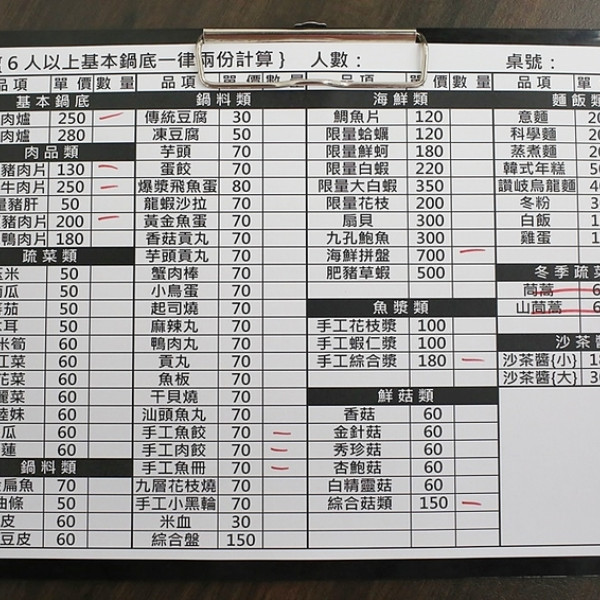 {6人以上基本鍋底一律兩份計算} 人數: 桌號:
品項 單價 數量 品項 單價 數量 品項 單價 數量 品項 單
基本鍋底
肉爐 250
肉爐 280
肉品類
豬肉片 130
牛肉片 250
豬肝 50
豬肉片 200
鴨肉片 180
蔬菜類
玉米 50
南瓜 50
番茄 50
木耳 50
米筍 60
紅菜 60
花菜 60
麗菜 60
陸妹 60
瓜 60
蓮 60
鍋料類
扁魚 70
油條 50
皮 60
豆皮 60
鍋料類
傳統豆腐 30
凍豆腐 50
芋頭 70
蛋餃 70
爆漿飛魚蛋 80
龍蝦沙拉 70
黃金魚蛋 70
香菇貢丸 70
芋頭貢丸 70
蟹肉棒 70
小鳥蛋 70
起司燒 70
麻辣丸 70
鴨肉丸 70
貢丸 70
魚板 70
干貝燒 70
汕頭魚丸 70
手工魚餃 70
手工肉餃 70
手工魚冊 70
九層花枝燒 70
手工小黑輪 70
米血 30
綜合盤 150
海鮮類
鯛魚片 120
限量蛤蠣 120
限量鮮蚵 180
限量白蝦 220
限量大白蝦 350
限量花枝 200
扇貝 300
九孔鮑魚 300
海鮮拼盤 700
肥豬草蝦 500
魚漿類
手工花枝漿 100
手工蝦仁漿 100
手工綜合漿 180
鮮菇類
香菇 60
金針菇 60
秀珍菇 60
杏鮑菇 60
白精靈菇 60
綜合菇類 150
麵飯類
意麵
科學麵
蒸煮麵
韓式年糕
讚岐烏龍麵
冬粉
白飯
雞蛋
冬季蔬菜
茼蒿
山茼蒿
沙茶醬
沙茶醬{小}
沙茶醬{大}